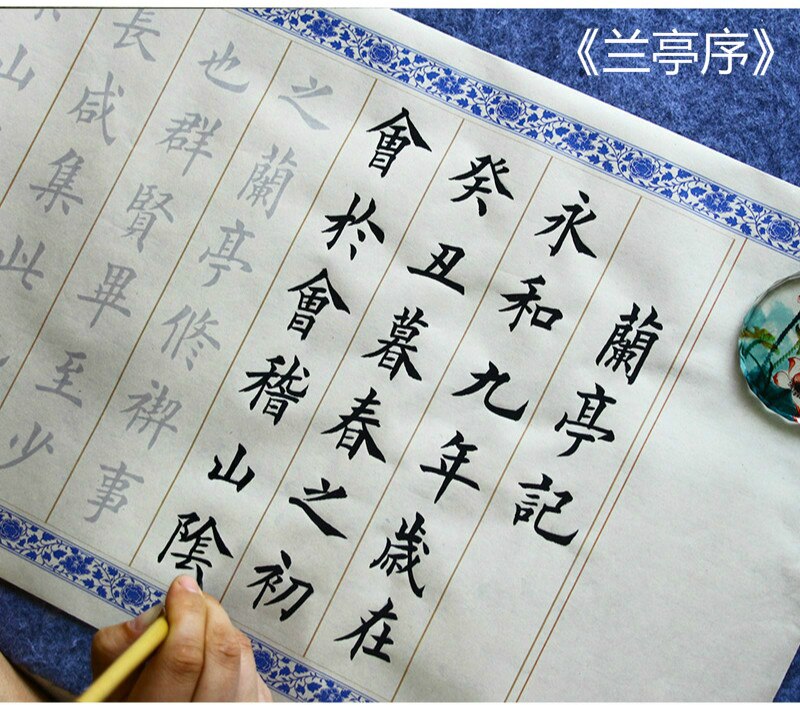 《兰亭序》
蘭亭記
永和九年歲在
癸丑暮春之初
會於會稽山陰
之蘭亭修禊事
也群賢畢至少
長咸集此
山